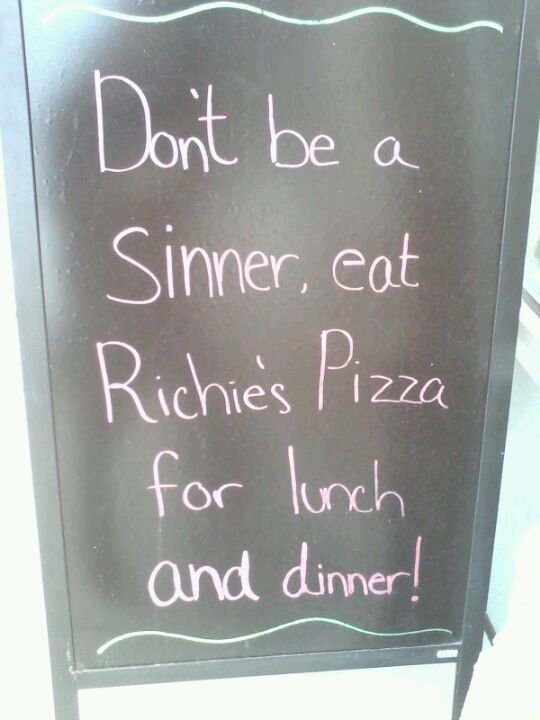 Don't be a
Sinner, eat
Richie's Pizza
for lunch
and dinner!